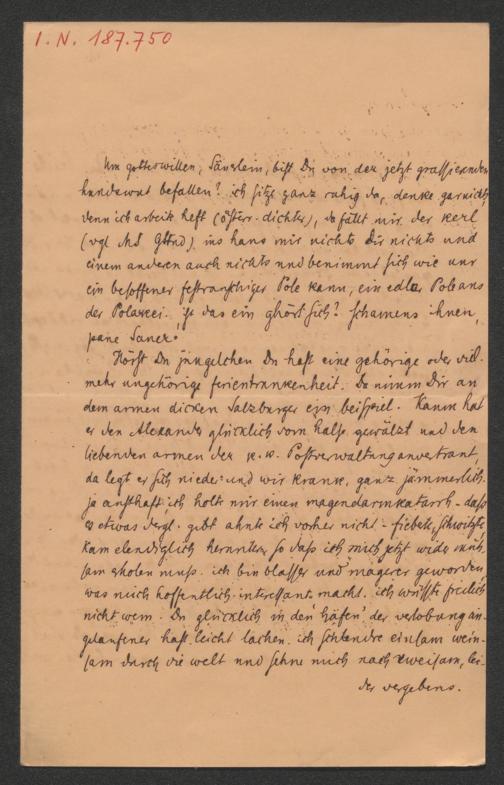 I. N. 187.750
Um gotteswillen, Sauerlein, bist Du von der jetzt grassierenden
hundswut befallen? ich sitze ganz ruhig da, denke gar nichts
denn ich arbeite heft (österr. dichter), da fällt mir der kerl
(vgl ins haus mir nichts Dir nichts und
einem anderen auch nichts und benimmt sich wie nur
ein besoffener Pole kann, ein edler Pole aus
der Polakei. ist das ein ghört sich? schamens ihnen,
pane Sauer!
Hörst Du jüngelchen Du hast eine gehörige oder viel-
mehr ungehörige ferienkrankenheit. Da nimm Dir an
dem armen dicken Salzburger ein beispiel. Kaum hat
er den Alexander glücklich vom halse gewälzt und den
liebenden armen der k. k. Postverwaltung anvertraut,
da legt er sich nieder und wir krank, ganz jämmerlich.
ja ernsthaft ich holte mir einen magendarmkatarrh – dass
es etwas dergl. gibt ahnte ich vorher nicht – fieberte, schwitzte
kam elendiglich herunter, so dass ich mich jetzt wider müh-
sam erholen muss. ich bin blasser und magerer geworden
was mich hoffentlich interessant macht. ich wüsste freilich
nicht wem. Du glücklich in den 'häfen' der verlobung ein-
gelaufener hast leicht lachen. ich schlendre einsam wein-
sam durch die welt und sehne mich nach zweisam, lei-
der vergebens.